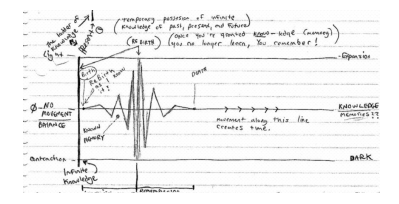 (temporary possession of infinite
knowledge of past, present, and future)
(REBIRTH)
(once you're granted know-ledge (memory)
you no longer learn, You remember!)
the holder of
knowledge
Light
PRESENT
Expansion
Birth
Rebirth
DEATH
Ø-NO
MOVEMENT
BALANCE
KNOWLEDGE
MEMORIES??
movement along this line
creates time.
MEMORY
contraction
DARK
Infinite
Knowledge
Remembering